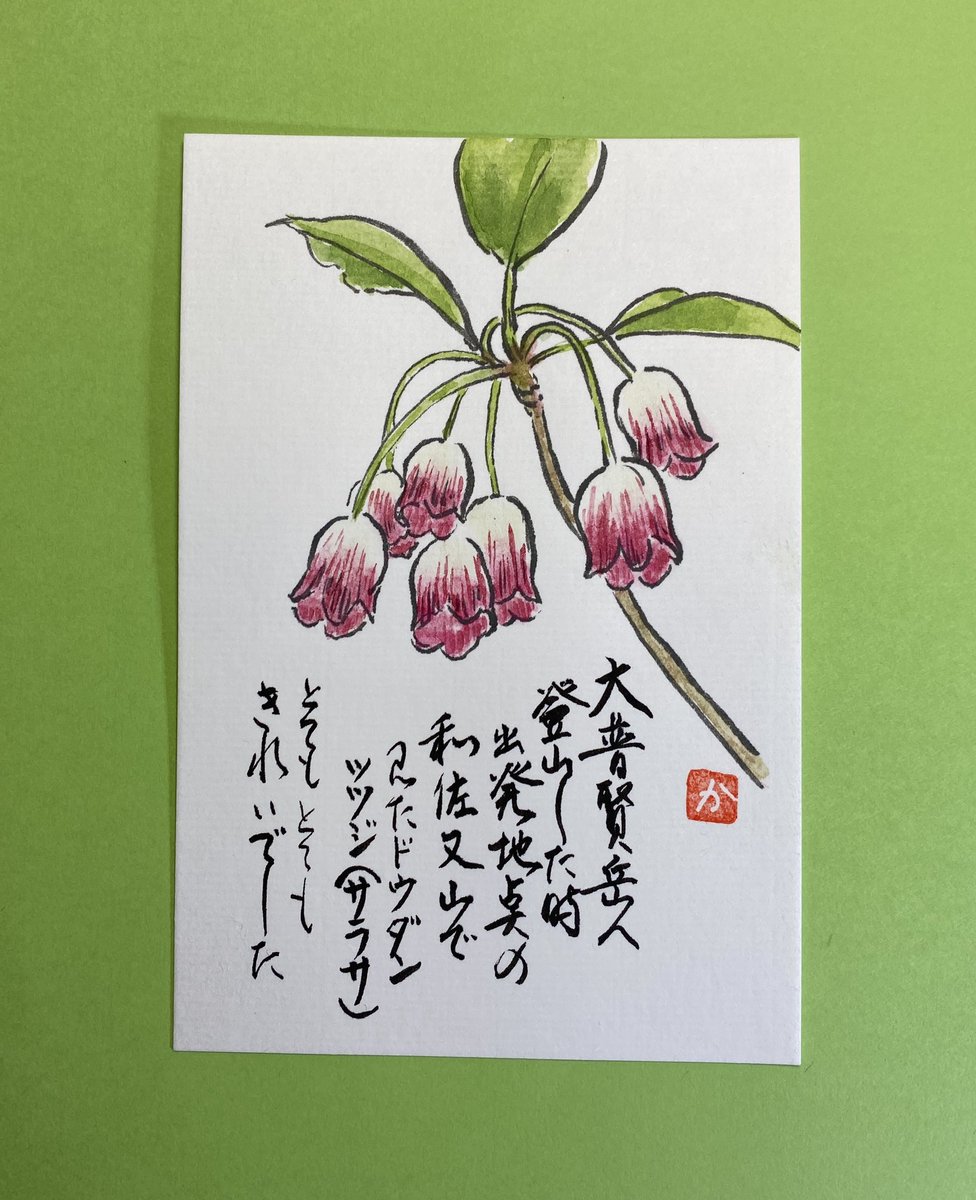 大普賢岳へ
登山した時
出発地点の
和佐又山で
見たドウダン
ツツジ(サラサ)
とてもとても
きれいでした
か